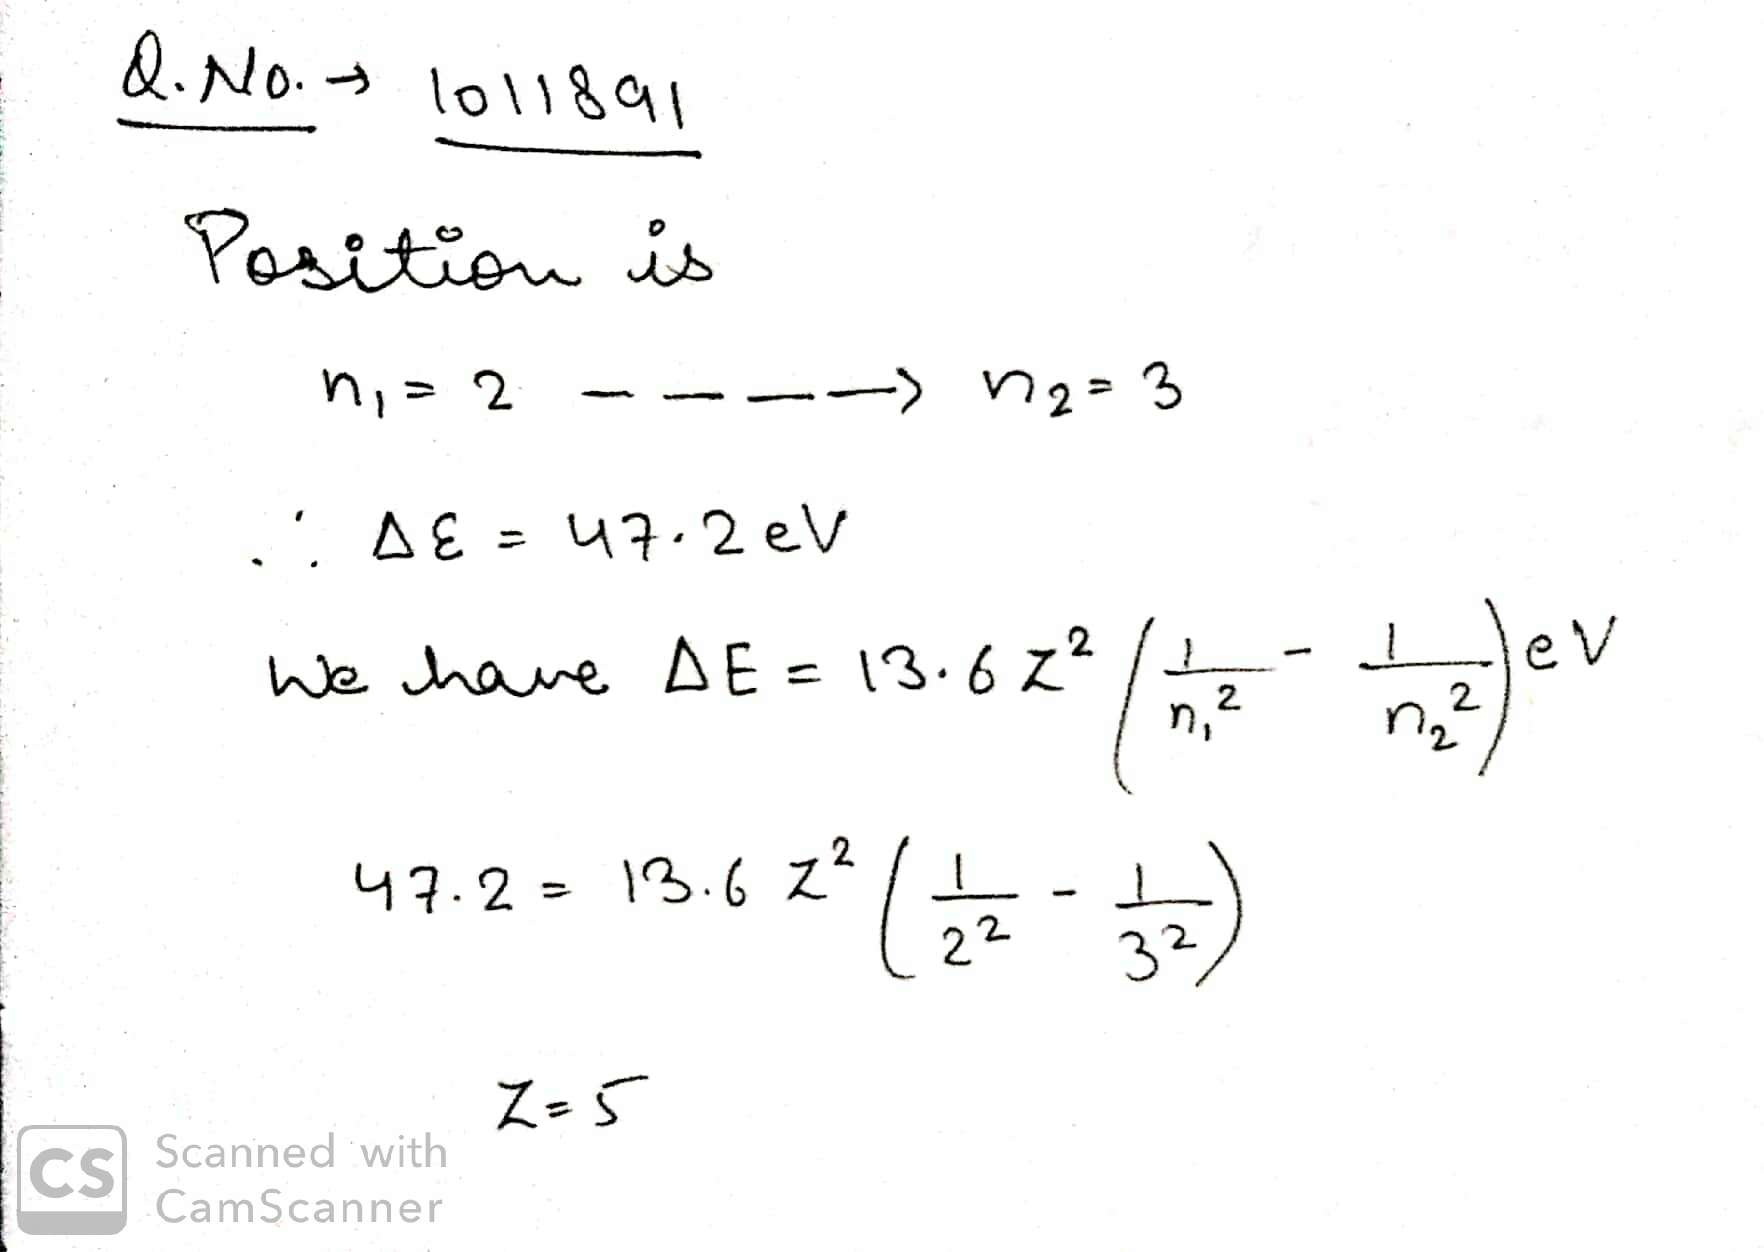 Q. No. → 1011891
Position is
n₁ = 2 - - - -> n₂ = 3
∴ ΔE = 47.2 eV
We have ΔE = 13.6 Z² (1/n₁² - 1/n₂²) eV
47.2 = 13.6 Z² (1/2² - 1/3²)
Z = 5
CS Scanned with
CamScanner